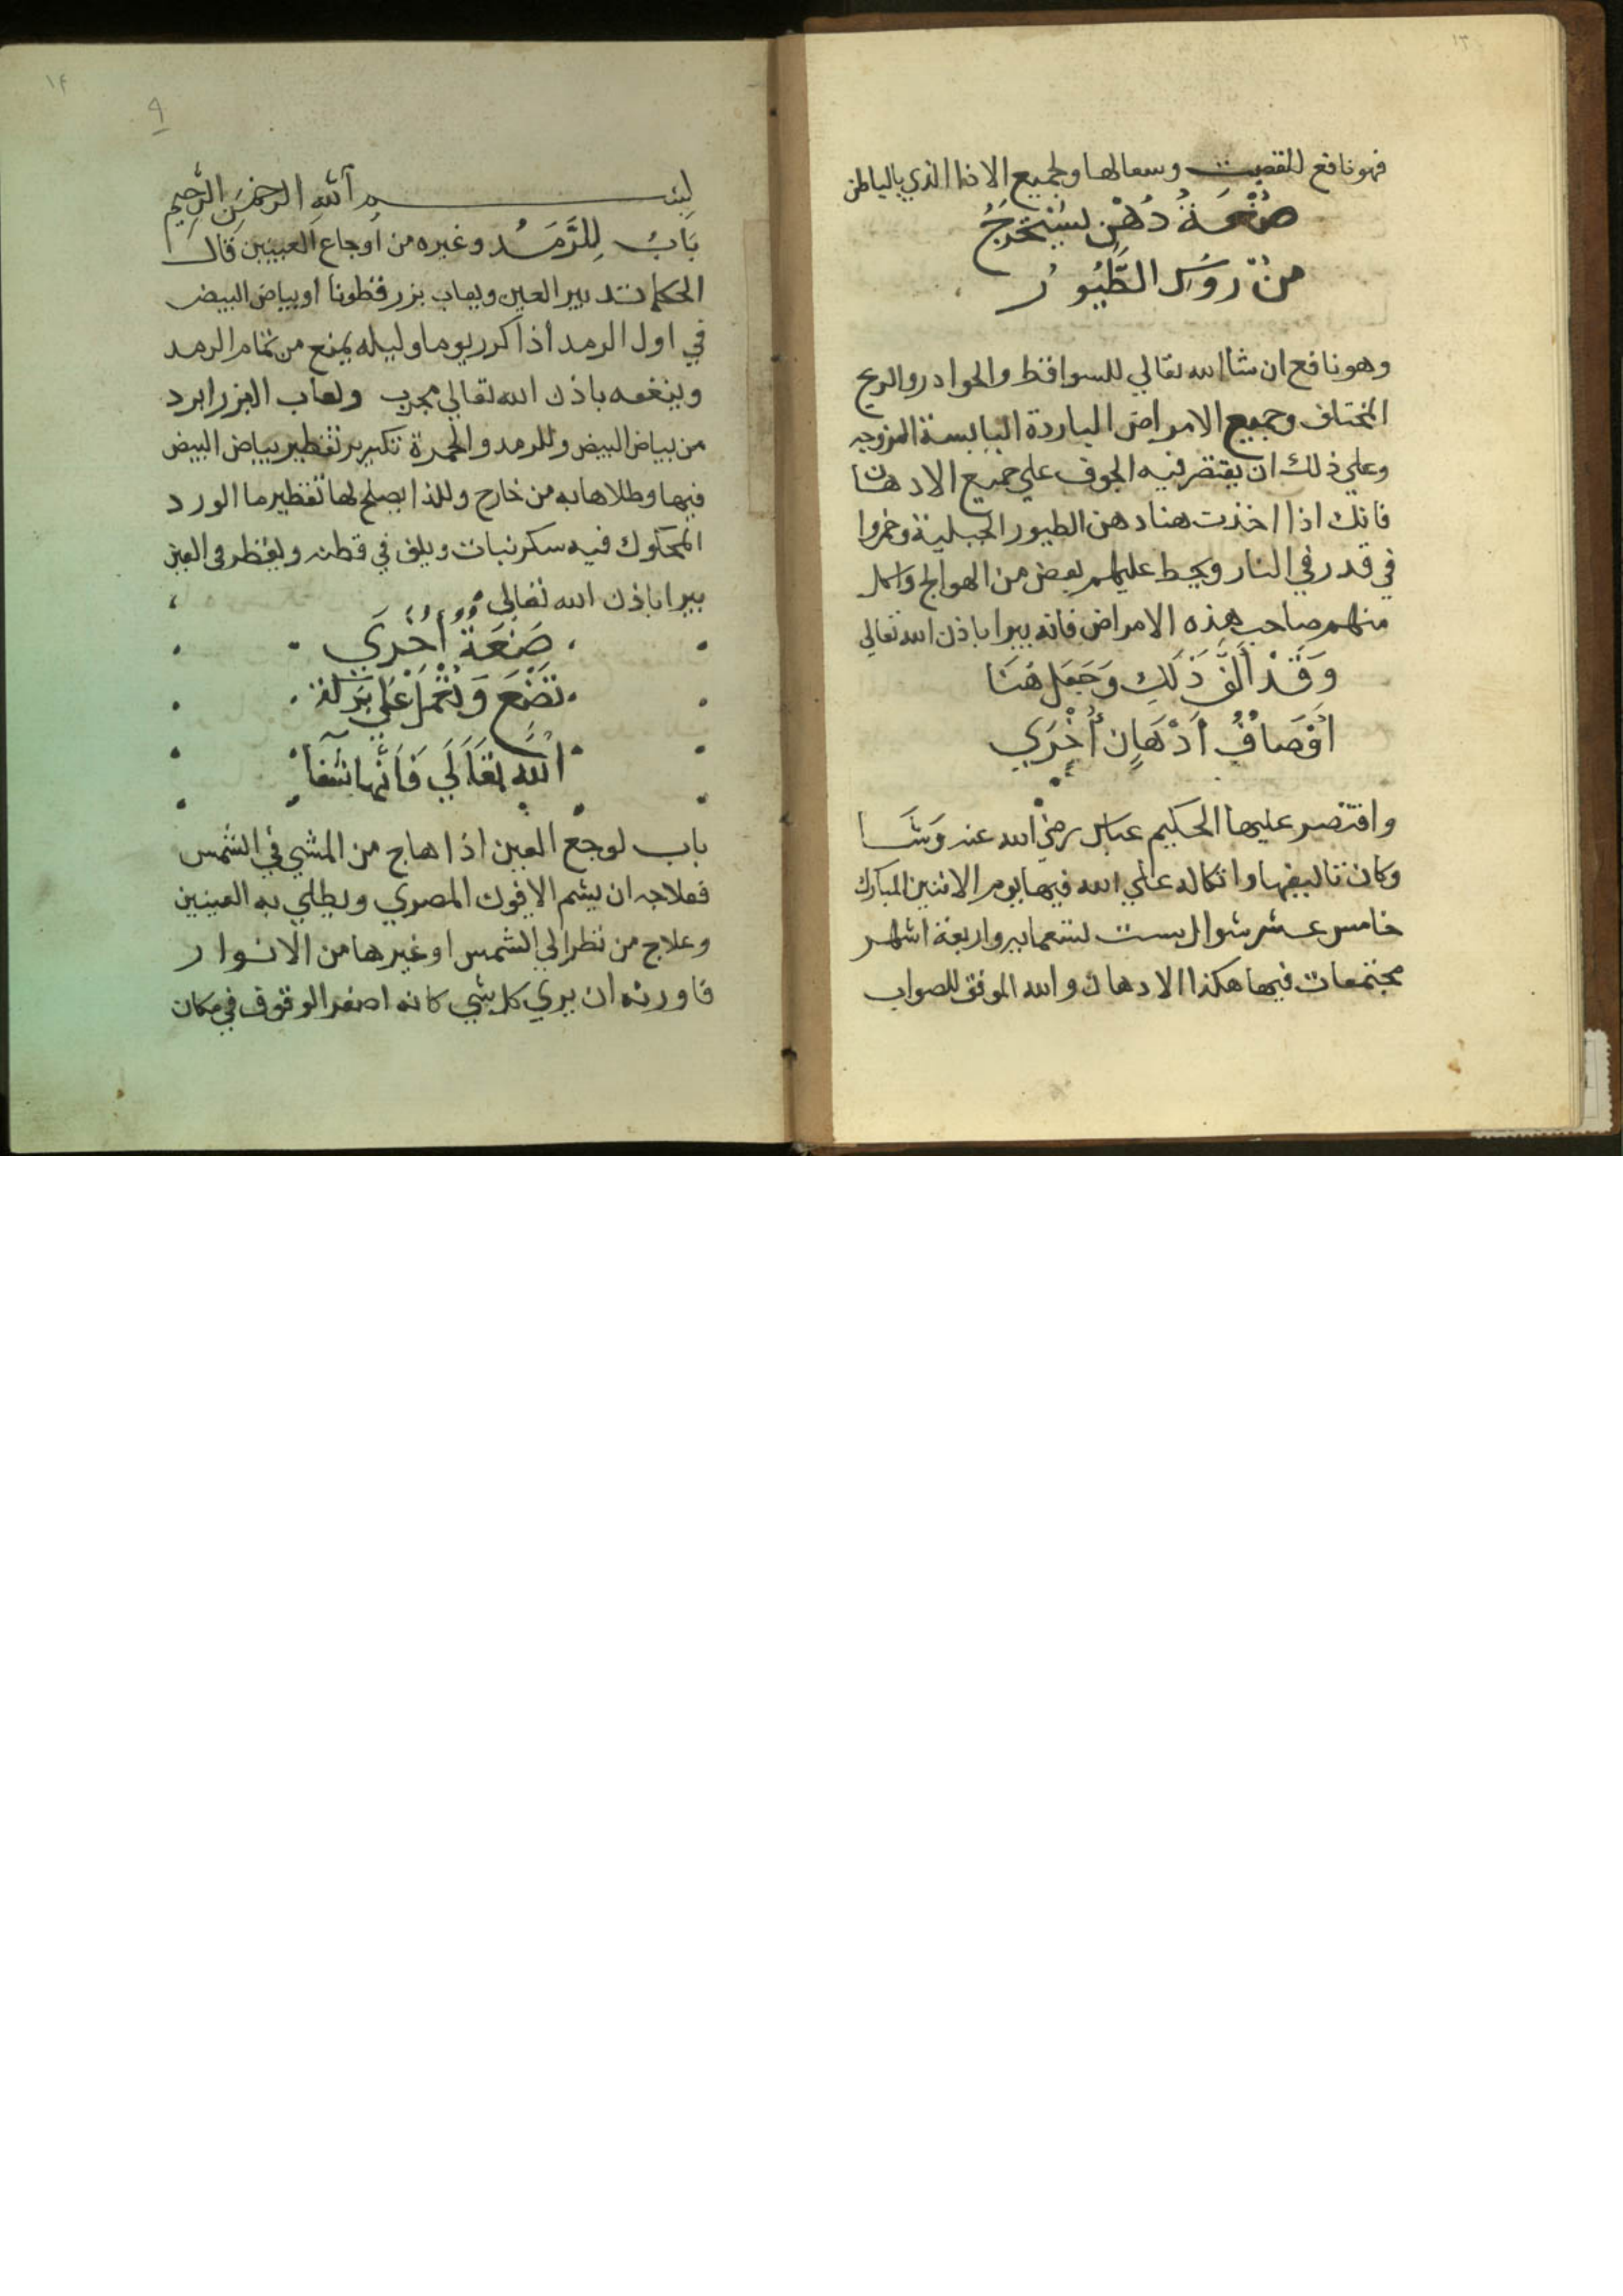 ١٣
فهو نافع للقصبت وسعالها ولجميع الاذا الذي بالباطن
صنعة دهن يستخرج
من روس الطيور
وهو نافع ان شا الله تعالي للسواقط والحوادر والريح
المختلف وجميع الامراض الباردة اليابسة المزوجه
وعلي ذلك ان يقتصر فيه الجوف علي جميع الادهان
فانك اذا اخذت هنا دهن الطيور الجبلية وخمروا
في قدر في النار ويحط عليهم بعض من الهوالج واكل
منهم صاحب هذه الامراض فانه يبرا باذن الله تعالي
وَقَدْ اَلَّفَ ذَلِكَ وَجَعَل هُنَا
اوْصَافُ أَدْهَانٍ أُخْرَي
واقتصر عليها الحكيم عباس رضي الله عنه وَشَا
وكان تاليفها واتكاله علي الله فيها يوم الاثنين المبارك
خامس عشر شوال ست تسعمايه واربعة اشهر
مجتمعات فيها هكذا الادهان والله الموفق للصواب
١٤
٩
بسم الله الرحمن الرحيم
بَابُ لِلرَّمَدُ وغيره من اوجاع العينين قال
الحكما تدبير العين ولعاب بزر قطونا او بياض البيض
في اول الرمد اذا كرر يوما وليله يمنع من تمام الرمد
وينفعه باذن الله تعالي مجرب ولعاب البزر ابرد
من بياض البيض وللرمد والحمرة تكبير تقطير بياض البيض
فيها وطلاها به من خارج وللذا يصلح لها تقطير ما الورد
المحكوك فيه سكر نبات ويلف في قطنه ويقطر في العين
يبرا باذن الله تعالي
صَنعَة أُخرَي
تصْنَع وَتُعْمَل عَلي بَرَكة
الله تعَالَي فَانَّها شفا
باب لوجع العين اذا هاج من المشي في الشمس
فعلاجه ان يشم الافيون المصري ويطلي به العينين
وعلاج من نظر الي الشمس او غيرها من الانوار
فاورثه ان يري كل شي كانه اصفر الوقوف في مكان